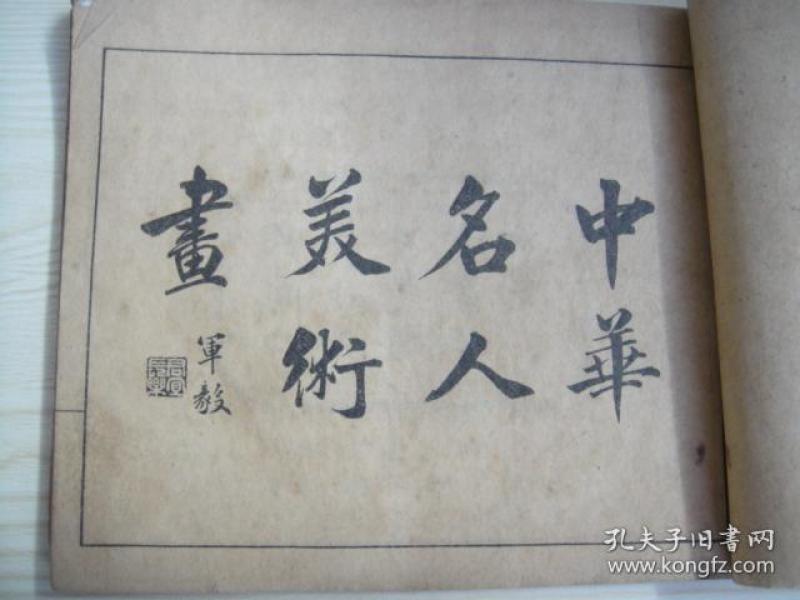 中華
名人
美術
畫
軍毅
孔夫子旧书网
www.kongfz.com